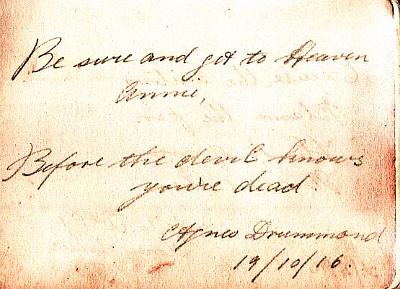 Be sure and get to Heaven
Annie,
Before the devil knows
you're dead.
Agnes Drummond
19/10/16.